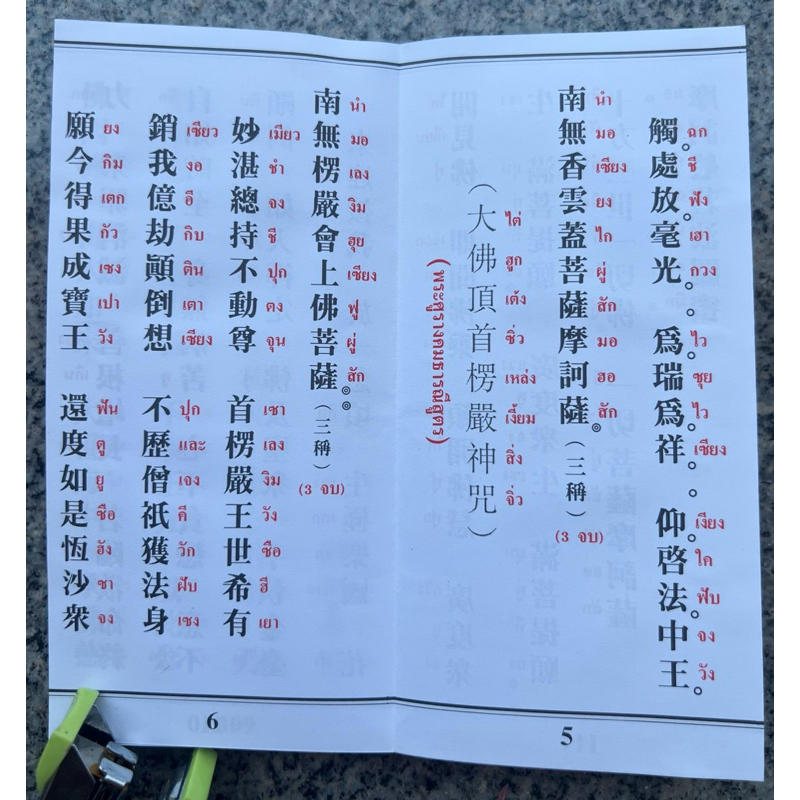 觸。處放。毫光。。為瑞為祥。。仰。啓法。中王。
ฉก ชี ฟัง เฮา กวง ไว ซุย ไว เซียง เงียง ใค ฟับ จง วัง
南無香雲蓋菩薩摩訶薩。(三稱)
นำ มอ เซียง ยง ไก ผู่ สัก มอ ฮอ สัก (3 จบ)
(大佛頂首楞嚴神咒)
ไต่ ฮูก เต้ง ซิ่ว เหล่ง เงี้ยม สิ่ง จิ่ว
(พระศูรางคมธารณีสูตร)
5
南無楞嚴會上佛菩薩。。(三稱)
นำ มอ เลง งิม ฮุย เซียง ฟู ผู่ สัก (3 จบ)
妙湛總持不動尊 首楞嚴王世希有
เมี่ยว ชำ จง ชี ปุก ตง จุน เซา เลง งิม วัง ซือ ฮี เยา
銷我億劫顚倒想 不歷僧祇獲法身
เซียว งอ อี กิบ ติน เตา เซียง ปุก และ เจง คี วัก ฝับ เซง
願今得果成寶王 還度如是恆沙衆
ยง กิม เตก กัว เซง เปา วัง ฟัน ตู ยู ซือ ฮัง ซา จง
6